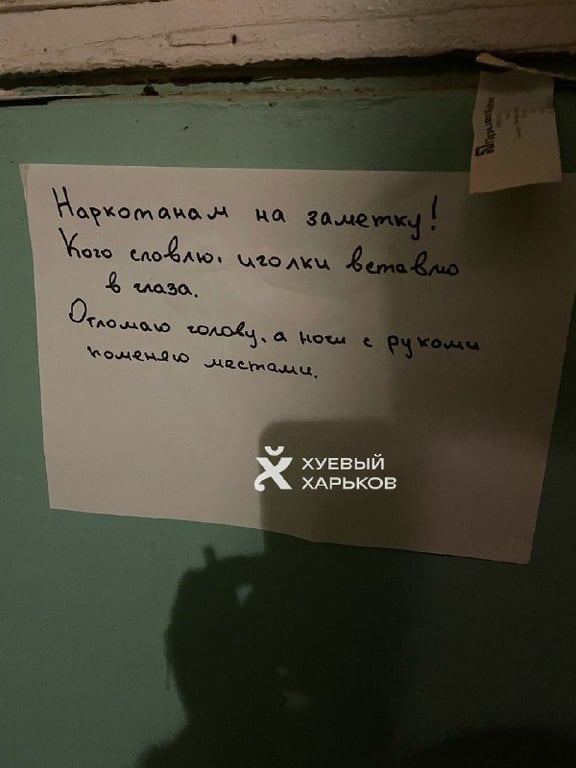 Наркотанам на заметку!
Кого словлю, иголки вставлю
в глаза.
Отломаю голову, а ноги с руками
поменяю местами.
ХУЕВЫЙ
ХАРЬКОВ